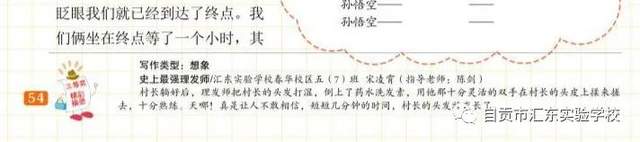 眨眼我们就已经到达了终点。我
们俩坐在终点等了一个小时，其
孙悟空——
孙悟空——
54
写作类型：想象
史上最强理发师/汇东实验学校春华校区五（7）班 宋凌霄（指导老师：陈剑）
村长躺好后，理发师把村长的头发打湿，倒上了药水洗发素，用他那十分灵活的双手在村长的头皮上揉来揉
去，十分熟练。天哪！真是让人不敢相信，短短几分钟的时间，村长的头发
自贡市汇东实验学校